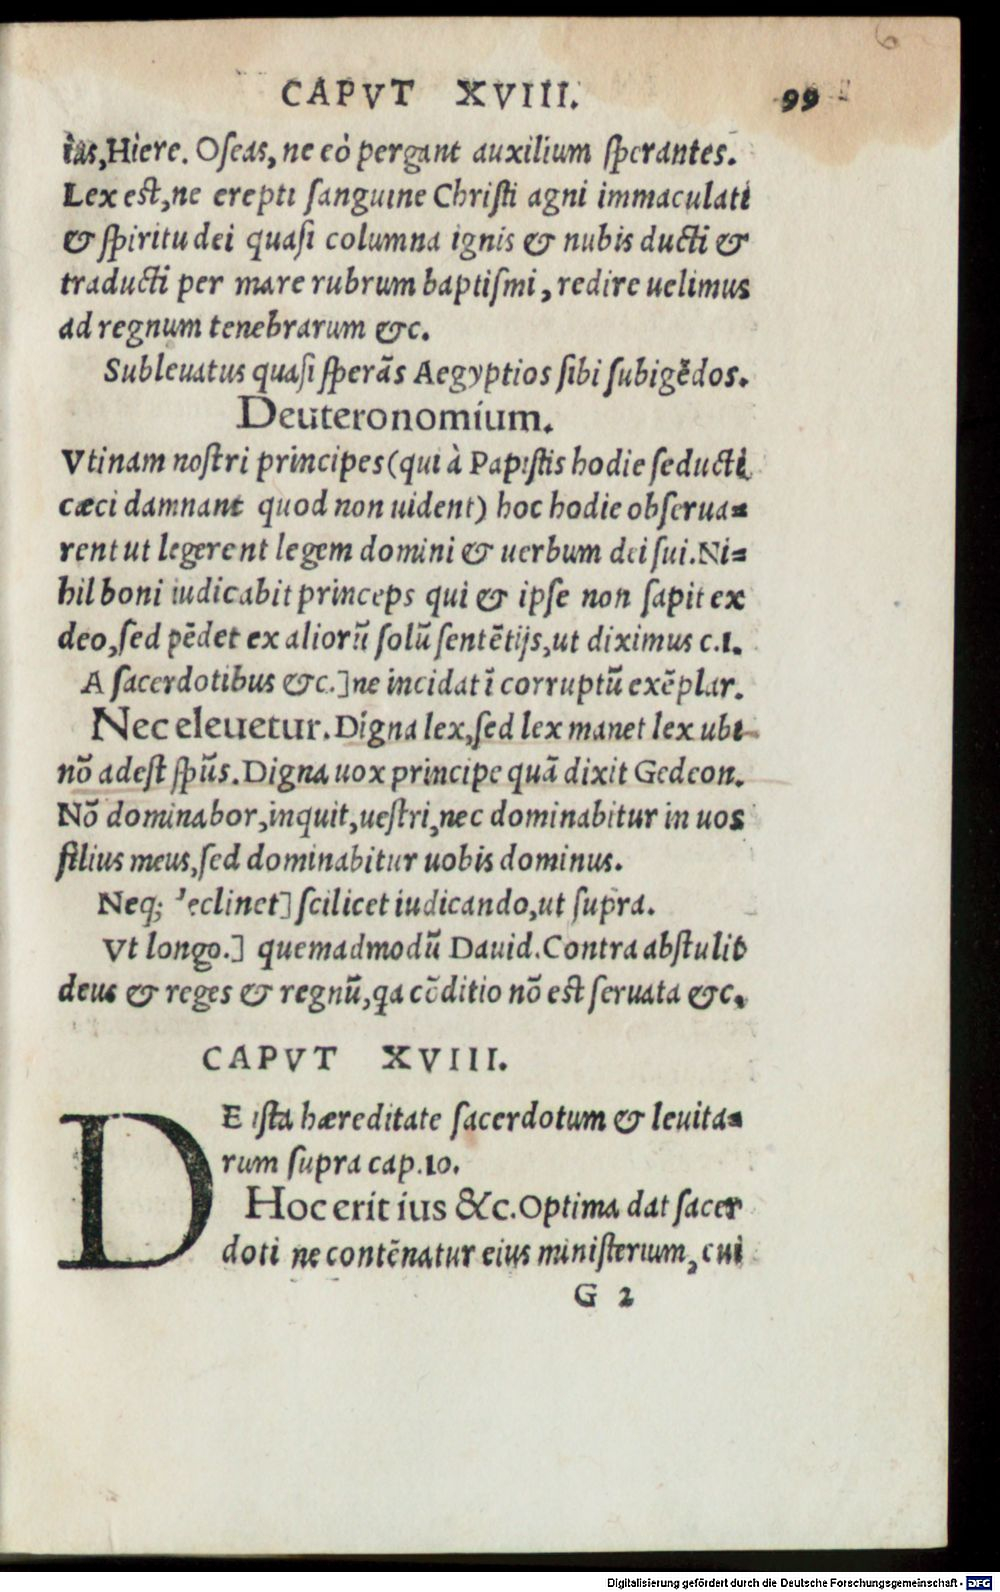 6
CAPVT XVIII. 99
ias, Hiere. Oseas, ne eò pergant auxilium sperantes.
Lex est, ne erepti sanguine Christi agni immaculati
& spiritu dei quasi columna ignis & nubis ducti &
traducti per mare rubrum baptismi, redire uelimus
ad regnum tenebrarum &c.
Subleuatus quasi sperãs Aegyptios sibi subigẽdos.
Deuteronomium.
Vtinam nostri principes (qui à Papistis hodie seducti
cæci damnant quod non uident) hoc hodie obserua=
rent ut legerent legem domini & uerbum dei sui. Ni=
hil boni iudicabit princeps qui & ipse non sapit ex
deo, sed pẽdet ex aliorũ solũ sentẽtijs, ut diximus c.1.
A sacerdotibus &c.] ne incidat ĩ corruptũ exẽplar.
Nec eleuetur. Digna lex, sed lex manet lex ubi
nõ adest sp̃us. Digna uox principe quã dixit Gedeon.
Nõ dominabor, inquit, uestri, nec dominabitur in uos
filius meus, sed dominabitur uobis dominus.
Neq; declinet] scilicet iudicando, ut supra.
Vt longo.] quemadmodũ Dauid. Contra abstulit
deus & reges & regnũ, qa cõditio nõ est seruata &c.
CAPVT XVIII.
DE ista hæreditate sacerdotum & leuita=
rum supra cap.10.
Hoc erit ius &c. Optima dat sacer
doti ne contẽnatur eius ministerium, cui
G 2
Digitalisierung gefördert durch die Deutsche Forschungsgemeinschaft - DFG